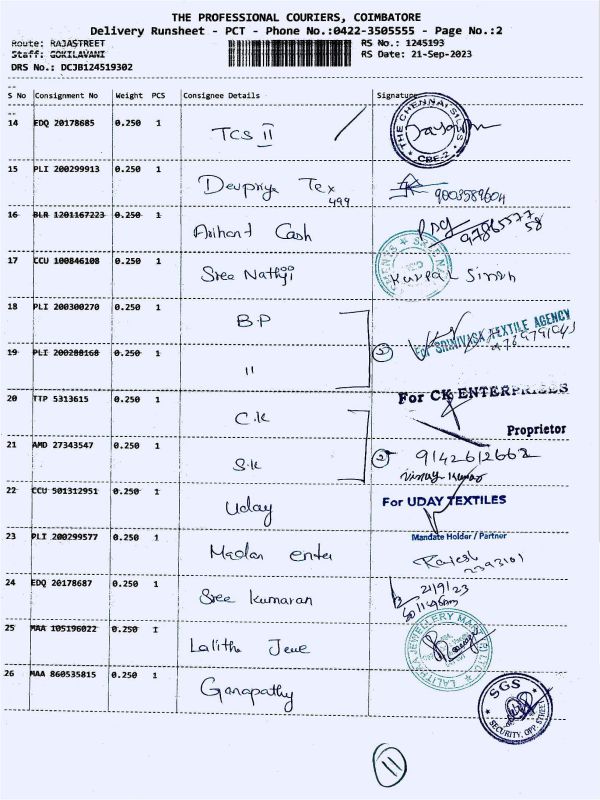 THE PROFESSIONAL COURIERS, COIMBATORE
Delivery Runsheet - PCT - Phone No.:0422-3505555 - Page No.:2
Route: RAJASTREET
RS No.: 1245193
Staff: GOKILAVANI
RS Date: 21-Sep-2023
DRS No.: DCJB124519302
S No Consignment No Weight PCS Consignee Details Signature
14 EDQ 20178685 0.250 1 TCS II
THE CHENNAI SILKS CBE-2
15 PLI 200299913 0.250 1 Devpriya Tex 499
9003589604
16 BLR 1201167223 0.250 1 Arihant Cash
17 CCU 100846108 0.250 1 Sree Nathji
18 PLI 200300270 0.250 1 B.P
For SRINIVASA TEXTILE AGENCY
19 PLI 200288168 0.250 1 11
2
20 TTP 5313615 0.250 1 C.K
For CK ENTERPRISES
Proprietor
21 AMD 27343547 0.250 1 S.K
2 9142612662
22 CCU 501312951 0.250 1 Uday
For UDAY TEXTILES
Mandate Holder / Partner
23 PLI 200299577 0.250 1 Madan enter
Rajesh
24 EDQ 20178687 0.250 1 Sree Kumaran
21/9/23
25 MAA 105196022 0.250 1 Lalitha Jewe
26 MAA 860535815 0.250 1 Ganapathy
SGS
SECURITY, OPP.
11